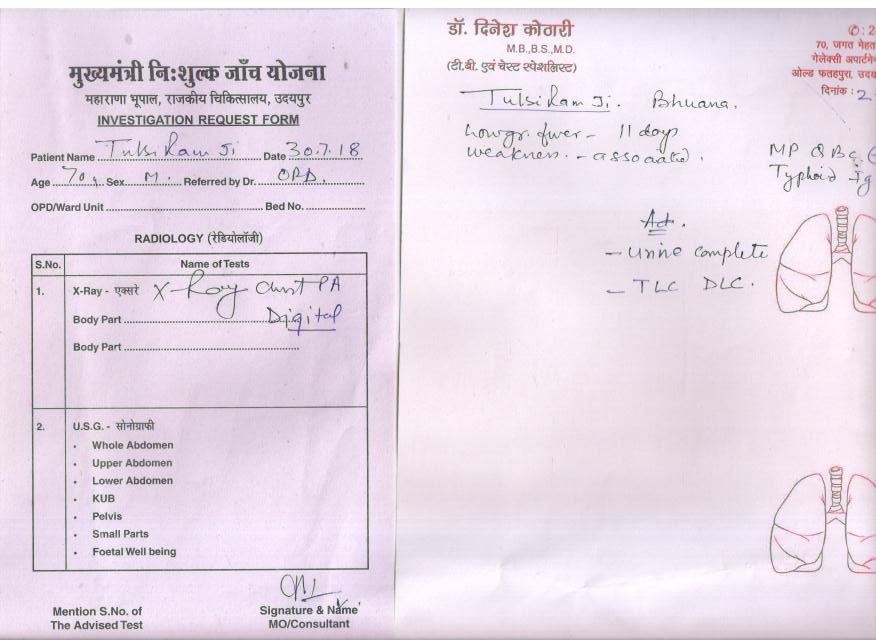 मुख्यमंत्री नि:शुल्क जाँच योजना
महाराणा भूपाल, राजकीय चिकित्सालय, उदयपुर
INVESTIGATION REQUEST FORM
Patient Name Tulsi Ram Ji Date 30.7.18
Age 70 Sex M. Referred by Dr. OPD.
OPD/Ward Unit Bed No.
RADIOLOGY (रेडियोलॉजी)
S.No. Name of Tests
1. X-Ray - एक्सरे X-Ray Chest PA
Body Part Digital
Body Part
2. U.S.G. - सोनोग्राफी
• Whole Abdomen
• Upper Abdomen
• Lower Abdomen
• KUB
• Pelvis
• Small Parts
• Foetal Well being
Mention S.No. of
The Advised Test
Signature & Name
MO/Consultant
डॉ. दिनेश कोठारी
M.B.,B.S.,M.D.
(टी.बी. एवं चेस्ट स्पेशलिस्ट)
✆: 2
70, जगत मेहत
गेलेक्सी अपार्टमे
ओल्ड फतहपुरा, उदय
दिनांक : 2
Tulsi Ram Ji. Bhuana.
fever - 11 days
weakness. - associated.
MP QBC
Typhoid Ig
Ad.
- Urine complete
- TLC DLC.